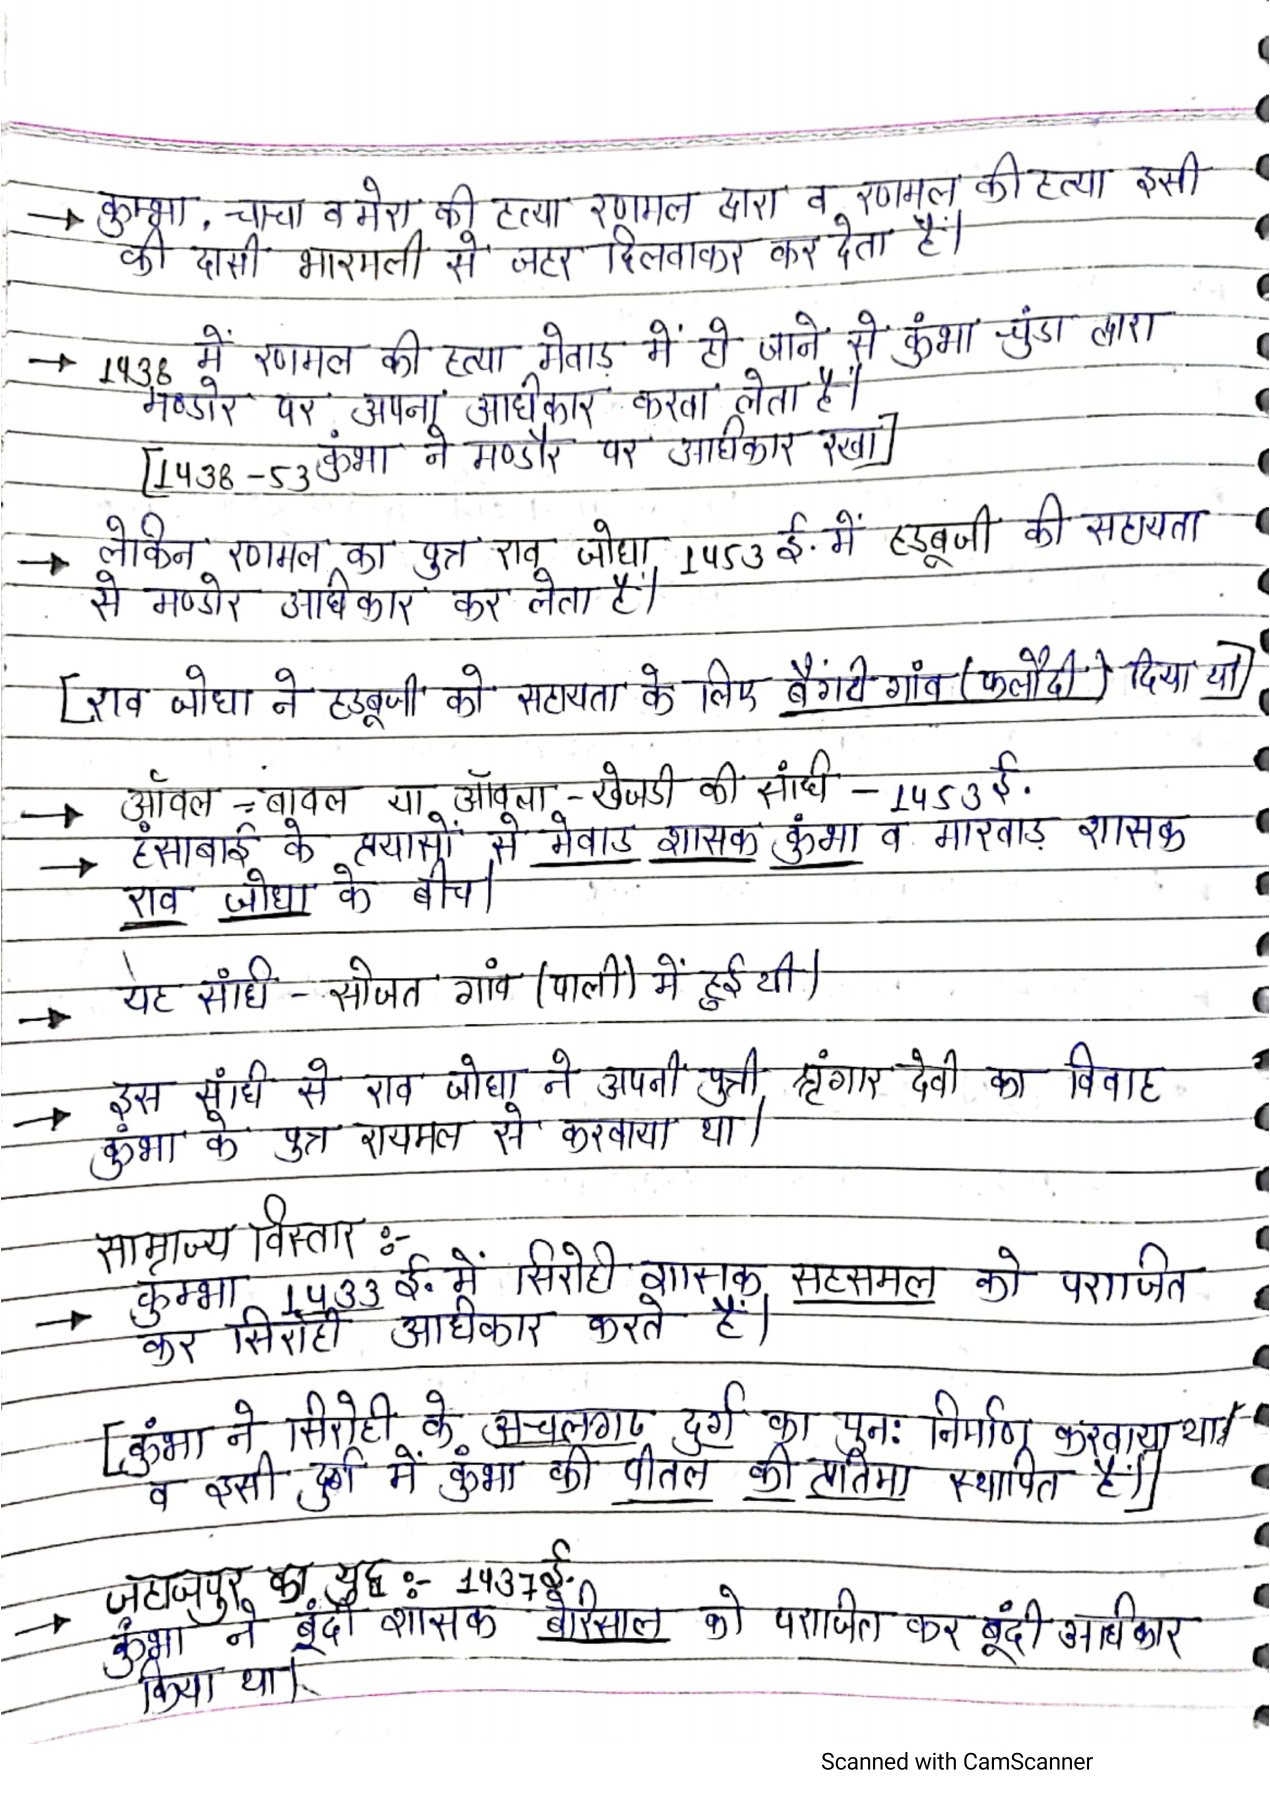 → कुम्भा, चाचा व मेरा की हत्या रणमल द्वारा व रणमल की हत्या इसी
की दासी भारमली से जहर दिलवाकर कर देता है।
→ 1438 में रणमल की हत्या मेवाड़ में हो जाने से कुंभा चुंडा द्वारा
मण्डोर पर अपना अधिकार करवा लेता है।
[1438-53 कुंभा ने मण्डोर पर अधिकार रखा]
→ लेकिन रणमल का पुत्र राव जोधा 1453 ई. में हडबूजी की सहायता
से मण्डोर अधिकार कर लेता है।
[राव जोधा ने हडबूजी को सहायता के लिए बैंगटी गांव (फलौदी) दिया था]
→ ऑवल = बांवल या ऑवला - खेजडी की संधि - 1453 ई.
→ हंसाबाई के प्रयासों से मेवाड शासक कुंभा व मारवाड़ शासक
राव जोधा के बीच।
→ यह संधि - सोजत गांव (पाली) में हुई थी।
→ इस संधि से राव जोधा ने अपनी पुत्री श्रृंगार देवी का विवाह
कुंभा के पुत्र रायमल से करवाया था।
साम्राज्य विस्तार :-
→ कुम्भा 1433 ई. में सिरोही शासक सहसमल को पराजित
कर सिरोही अधिकार करते हैं।
[कुंभा ने सिरोही के अचलगढ दुर्ग का पुन: निर्माण करवाया था।
व इसी दुर्ग में कुंभा की पीतल की प्रतिमा स्थापित है।]
जहाजपुर का युद्ध :- 1437 ई.
→ कुंभा ने बूंदी शासक बेरिसाल को पराजित कर बूंदी अधिकार
किया था।
Scanned with CamScanner